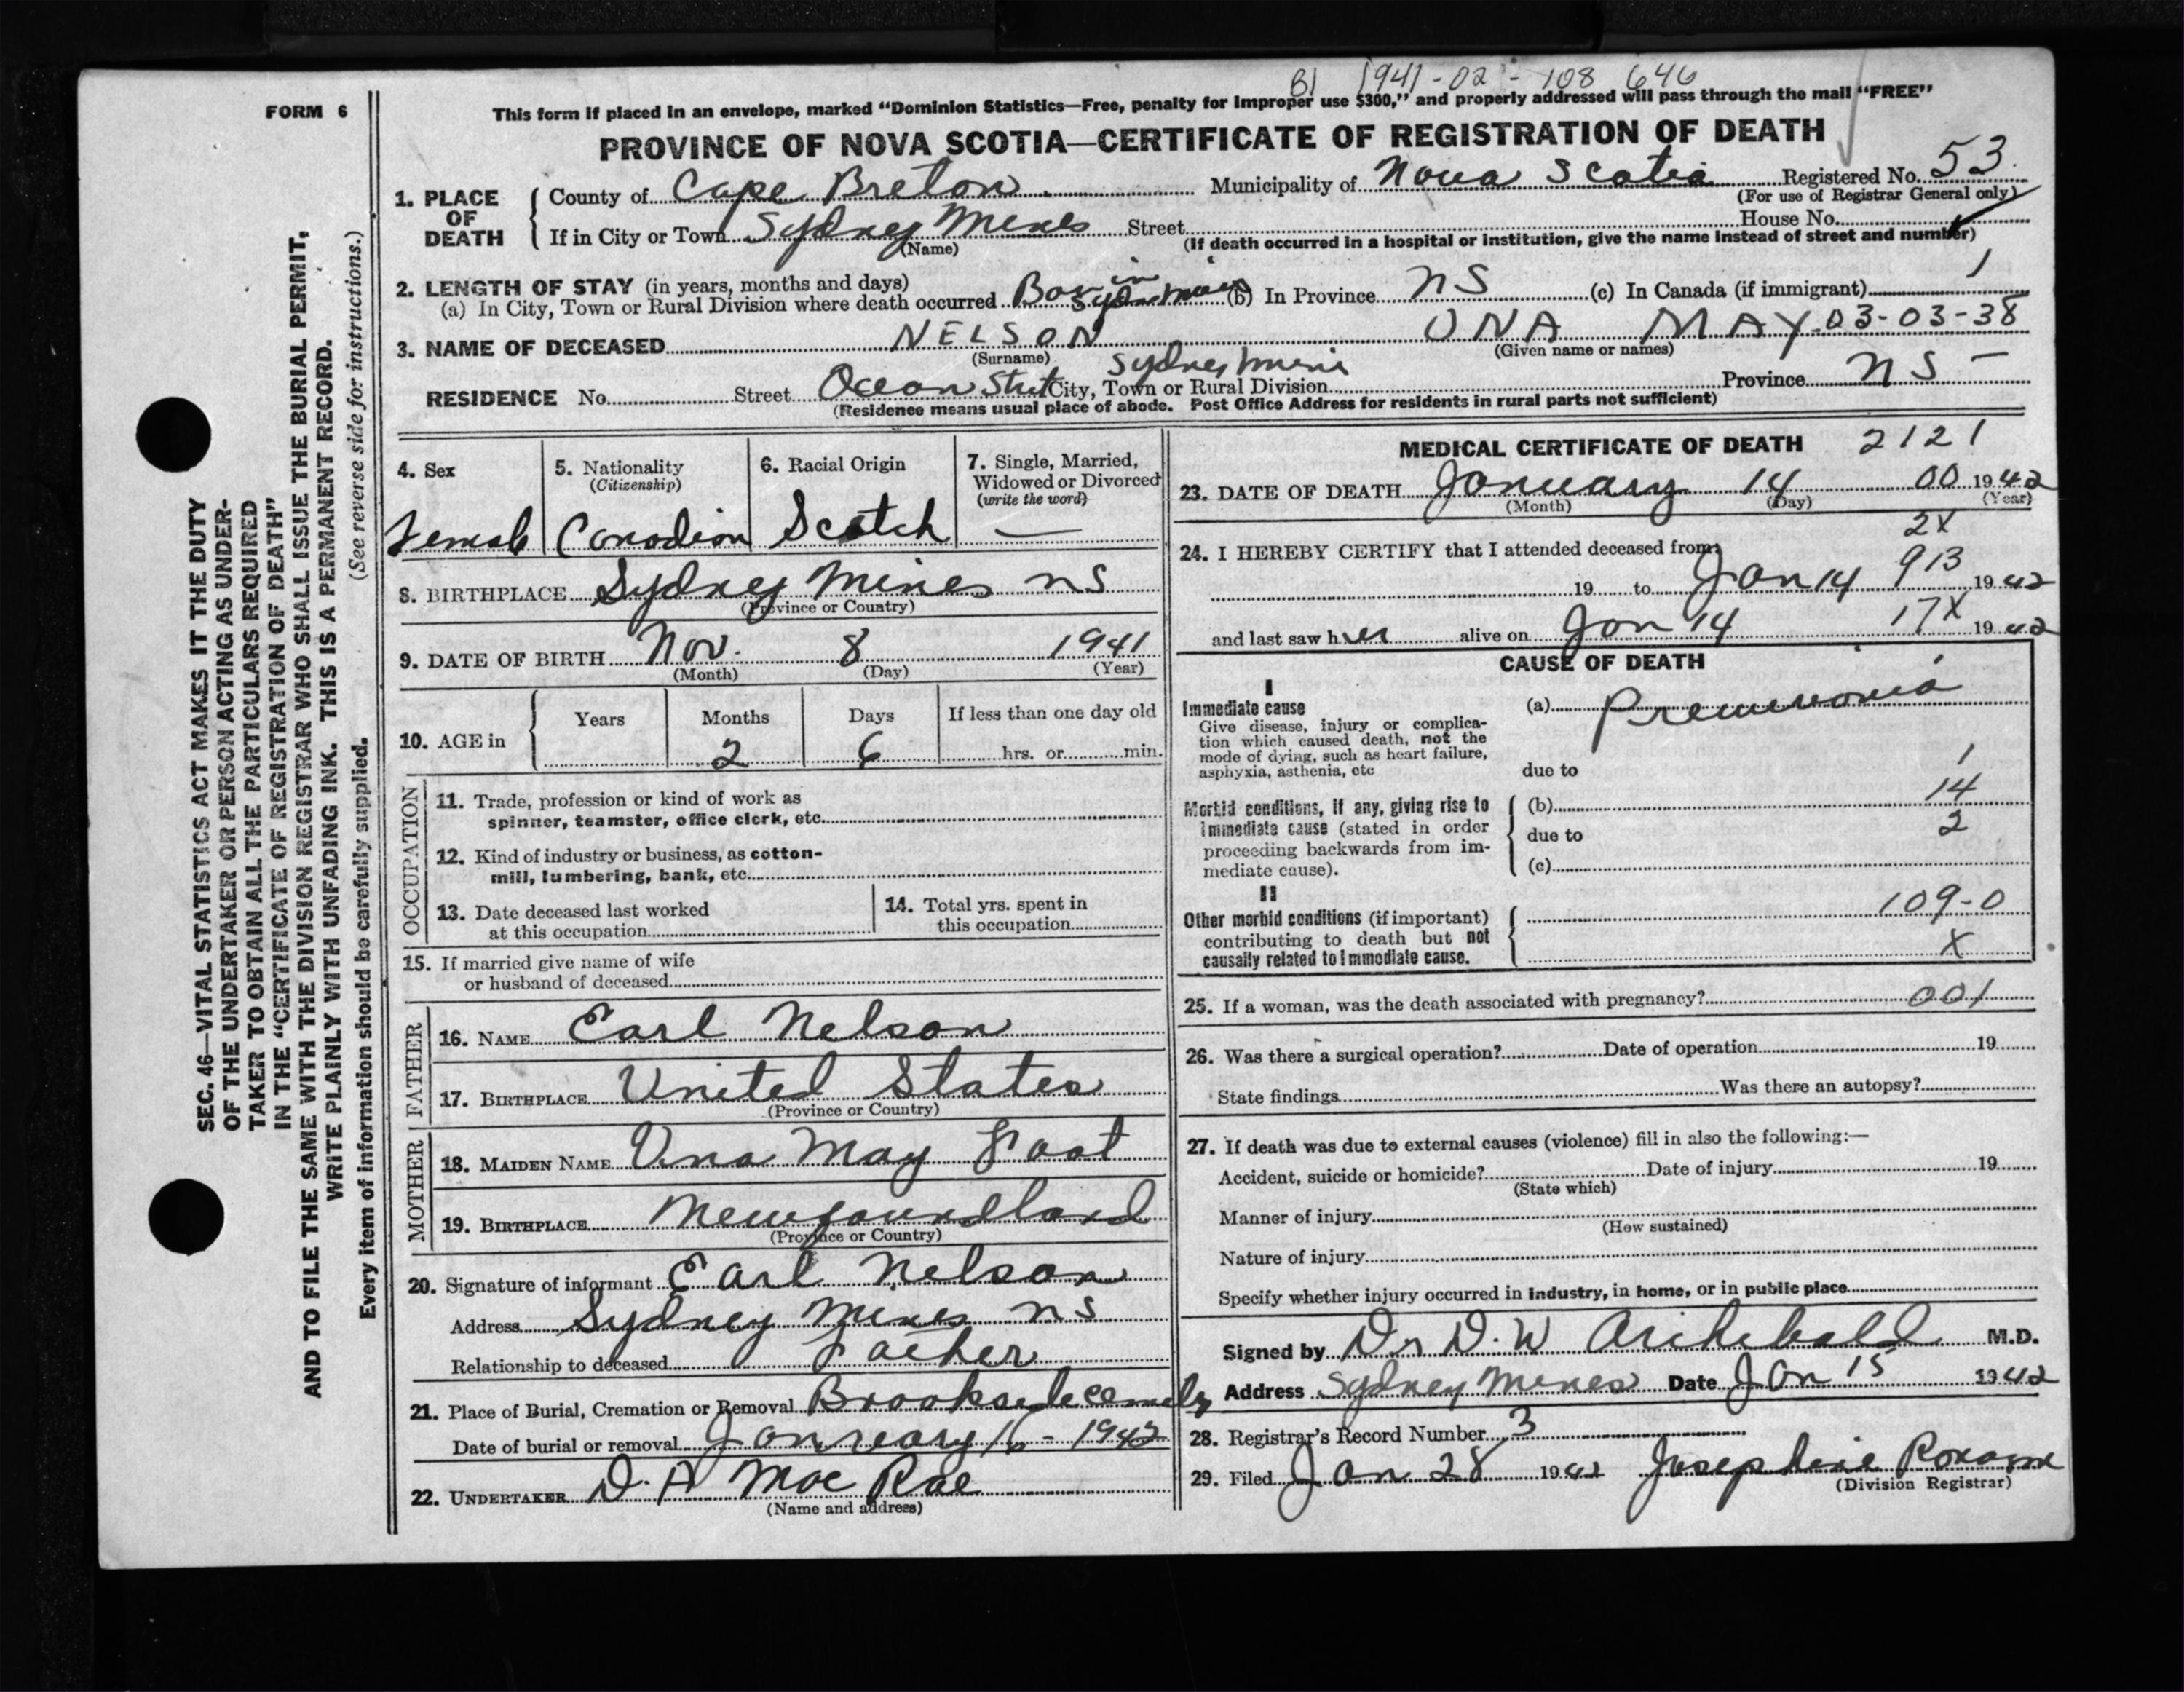 B1 1941-02-108 646
FORM 6
This form if placed in an envelope, marked “Dominion Statistics—Free, penalty for improper use $300,” and properly addressed will pass through the mail “FREE”
PROVINCE OF NOVA SCOTIA—CERTIFICATE OF REGISTRATION OF DEATH
SEC. 46—VITAL STATISTICS ACT MAKES IT THE DUTY
OF THE UNDERTAKER OR PERSON ACTING AS UNDER-
TAKER TO OBTAIN ALL THE PARTICULARS REQUIRED
IN THE “CERTIFICATE OF REGISTRATION OF DEATH”
AND TO FILE THE SAME WITH THE DIVISION REGISTRAR WHO SHALL ISSUE THE BURIAL PERMIT,
WRITE PLAINLY WITH UNFADING INK. THIS IS A PERMANENT RECORD.
Every item of information should be carefully supplied. (See reverse side for instructions.)
1. PLACE OF DEATH County of Cape Breton Municipality of Nova Scotia Registered No. 53
(For use of Registrar General only)
If in City or Town Sydney Mines Street House No.
(Name) (If death occurred in a hospital or institution, give the name instead of street and number)
2. LENGTH OF STAY (in years, months and days)
(a) In City, Town or Rural Division where death occurred Born in Syd Mines (b) In Province NS (c) In Canada (if immigrant) 1
3. NAME OF DECEASED NELSON UNA MAY 03-03-38
(Surname) (Given name or names)
RESIDENCE No. Street Ocean Street City, Town or Rural Division Sydney Mines Province NS —
(Residence means usual place of abode. Post Office Address for residents in rural parts not sufficient)
4. Sex Female
5. Nationality (Citizenship) Canadian
6. Racial Origin Scotch
7. Single, Married, Widowed or Divorced (write the word) —
8. BIRTHPLACE Sydney Mines NS
(Province or Country)
9. DATE OF BIRTH Nov. 8 1941
(Month) (Day) (Year)
10. AGE in Years Months Days If less than one day old
2 6 hrs. or min.
OCCUPATION
11. Trade, profession or kind of work as
spinner, teamster, office clerk, etc.
12. Kind of industry or business, as cotton-
mill, lumbering, bank, etc.
13. Date deceased last worked
at this occupation
14. Total yrs. spent in
this occupation
15. If married give name of wife
or husband of deceased
FATHER
16. NAME Earl Nelson
17. BIRTHPLACE United States
(Province or Country)
MOTHER
18. MAIDEN NAME Una May Foot
19. BIRTHPLACE Newfoundland
(Province or Country)
20. Signature of informant Earl Nelson
Address Sydney Mines NS
Relationship to deceased Father
21. Place of Burial, Cremation or Removal Brookside
Date of burial or removal January 16 - 1942
22. UNDERTAKER D. A MacRae
(Name and address)
MEDICAL CERTIFICATE OF DEATH 2121
23. DATE OF DEATH January 14 00 1942
(Month) (Day) (Year)
2X
24. I HEREBY CERTIFY that I attended deceased from:
19 to Jan 14 913 1942
and last saw her alive on Jan 14 17X 1942
CAUSE OF DEATH
I
Immediate cause
Give disease, injury or complica-
tion which caused death, not the
mode of dying, such as heart failure,
asphyxia, asthenia, etc
(a) Pneumonia
due to 1
Morbid conditions, if any, giving rise to
immediate cause (stated in order
proceeding backwards from im-
mediate cause).
(b) 14
due to 2
(c)
II
Other morbid conditions (if important)
contributing to death but not
causally related to immediate cause.
109-0
X
25. If a woman, was the death associated with pregnancy? 001
26. Was there a surgical operation? Date of operation 19
State findings Was there an autopsy?
27. If death was due to external causes (violence) fill in also the following:—
Accident, suicide or homicide? Date of injury 19
(State which)
Manner of injury
(How sustained)
Nature of injury
Specify whether injury occurred in industry, in home, or in public place
Signed by Dr D. W Archibald M.D.
Address Sydney Mines Date Jan 15 1942
28. Registrar's Record Number 3
29. Filed Jan 28 1942 Josephine
(Division Registrar)